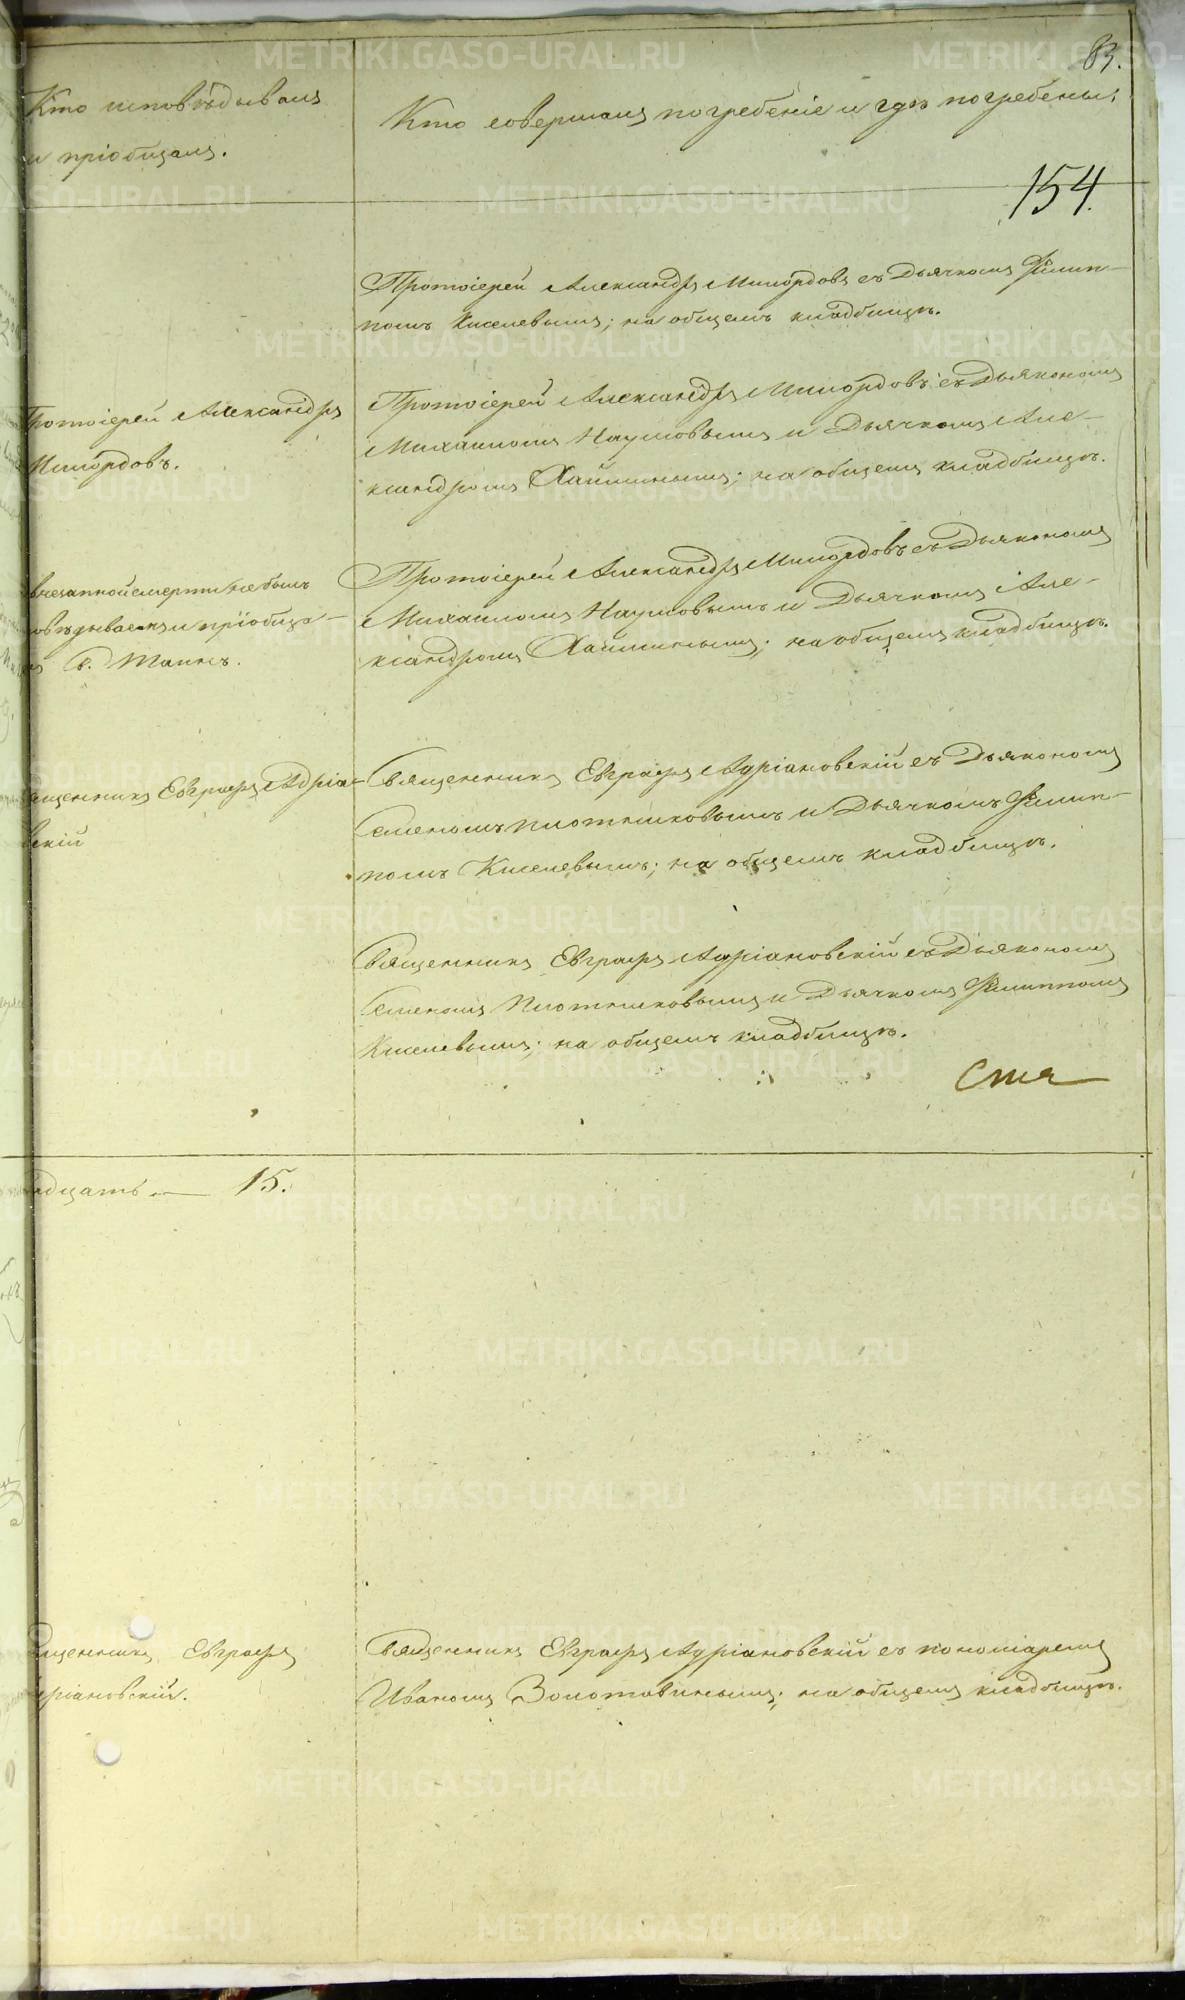 83.
Кто исповѣдывалъ
и пріобщалъ.
Кто совершалъ погребеніе и гдѣ погребены.
154.
Протоіерей Александръ Милордовъ съ Дьячкомъ Филип-
помъ Киселевымъ; на общемъ кладбищѣ.
Протоіерей Александръ
Милордовъ.
Протоіерей Александръ Милордовъ съ Дьякономъ
Михаиломъ Наумовымъ и Дьячкомъ Але-
ксандромъ Хайминымъ; на общемъ кладбищѣ.
внезапной смерти не былъ
овѣдыванъ и пріобща-
Св. Таинъ.
Протоіерей Александръ Милордовъ съ Дьякономъ
Михаиломъ Наумовымъ и Дьячкомъ Але-
ксандромъ Хайминымъ; на общемъ кладбищѣ.
ященникъ Евграфъ Адріа-
вскій
Священникъ Евграфъ Адріановскій съ Дьякономъ
Семеномъ Плотниковымъ и Дьячкомъ Филип-
помъ Киселевымъ; на общемъ кладбищѣ.
Священникъ Евграфъ Адріановскій съ Дьякономъ
Семеномъ Плотниковымъ и Дьячкомъ Филиппомъ
Киселевымъ; на общемъ кладбищѣ.
адцать — 15.
ященникъ Евграфъ
дріановскій.
Священникъ Евграфъ Адріановскій съ пономаремъ
Иваномъ Золотавинымъ; на общемъ кладбищѣ.
METRIKI.GASO-URAL.RU